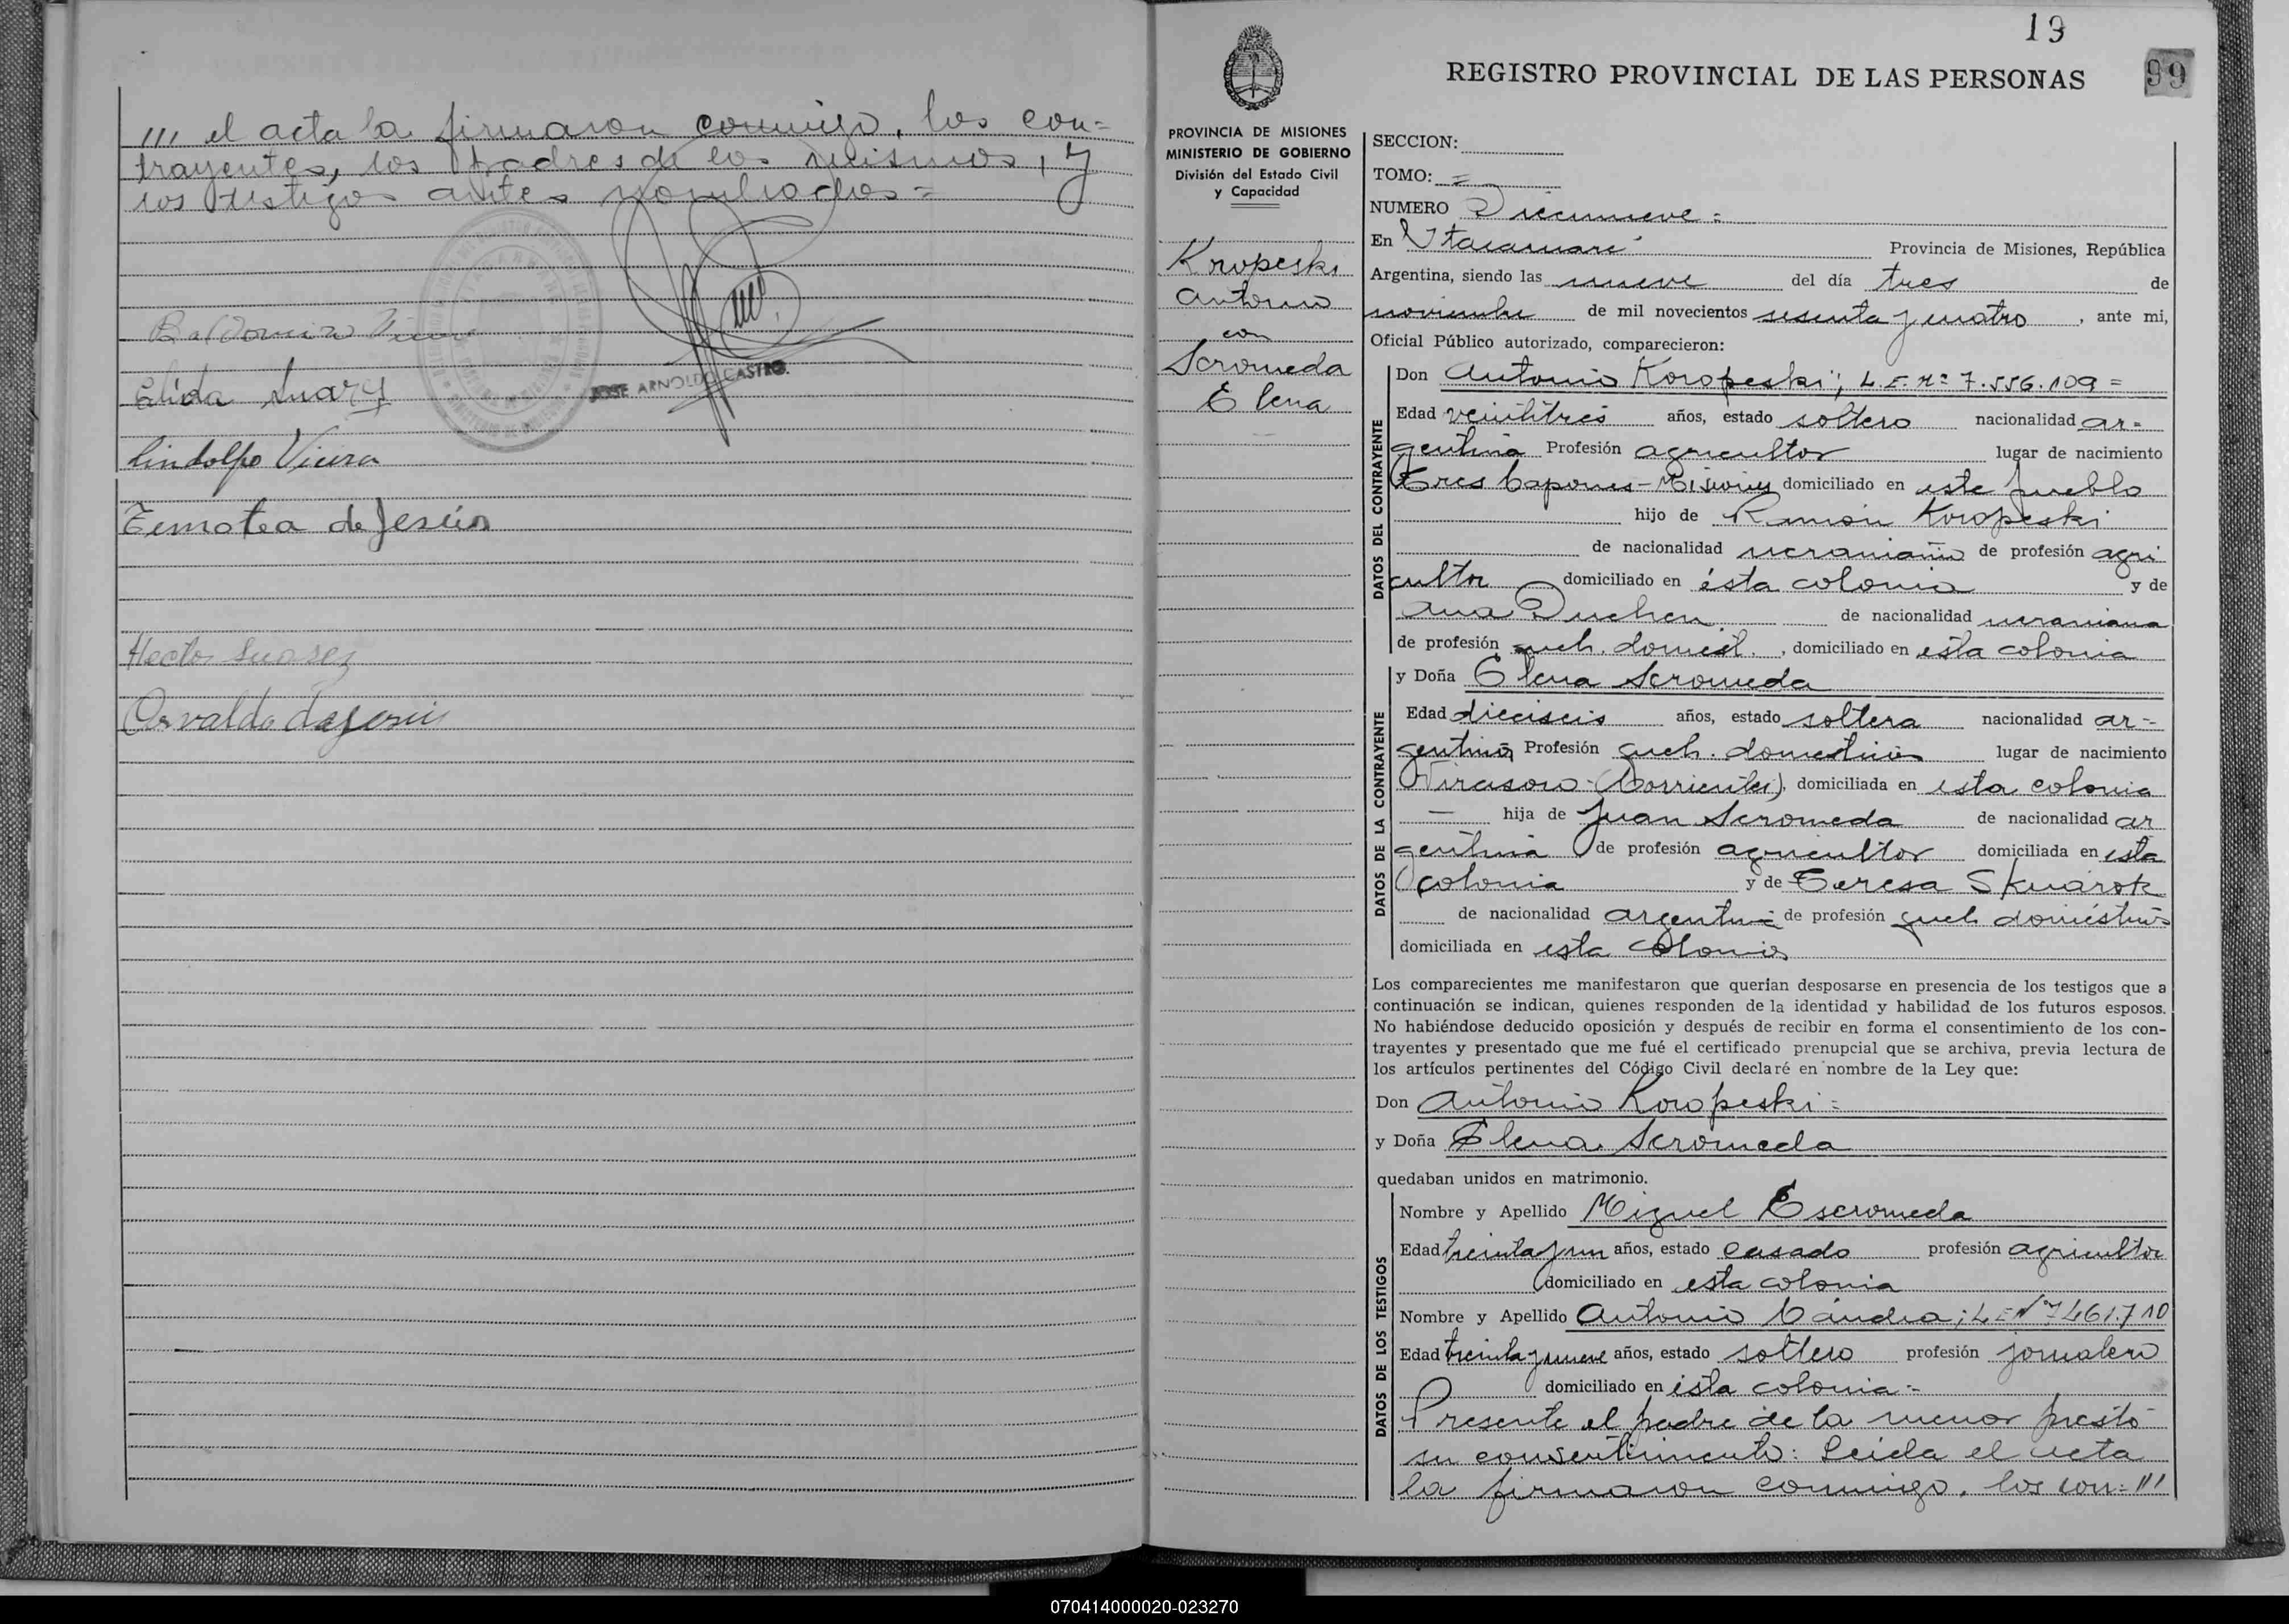 /// el acta la firmaron conmigo, los con=
trayentes, los padres de los mismos, y
los testigos antes nombrados =
JOSE ARNOLDO CASTRO.
Elida Suarez
Lindolfo Vieira
Temotea de Jesús
Hector Suarez
Osvaldo dajesus
19
REGISTRO PROVINCIAL DE LAS PERSONAS
99
PROVINCIA DE MISIONES
MINISTERIO DE GOBIERNO
División del Estado Civil
y Capacidad
Kropeski
Antonio
con
Scromeda
Elena
SECCION:
TOMO: =
NUMERO Diecinueve =
En Itacaruaré Provincia de Misiones, República
Argentina, siendo las nueve del día tres de
noviembre de mil novecientos sesenta y cuatro, ante mi,
Oficial Público autorizado, comparecieron:
DATOS DEL CONTRAYENTE
Don Antonio Koropeski; L.E. Nº 7.556.109 =
Edad veintitres años, estado soltero nacionalidad ar=
gentina Profesión agricultor lugar de nacimiento
Tres Capones-Misiones domiciliado en este pueblo
hijo de Ramón Koropeski
de nacionalidad ucraniano de profesión agri
cultor domiciliado en ésta colonia y de
Ana Duchen de nacionalidad ucraniana
de profesión queh. domést., domiciliado en esta colonia
DATOS DE LA CONTRAYENTE
y Doña Elena Scromeda
Edad dieciseis años, estado soltera nacionalidad ar=
gentina Profesión queh. domesticos lugar de nacimiento
Virasoro-(Corrientes), domiciliada en esta colonia
— hija de Juan Scromeda de nacionalidad ar
gentina de profesión agricultor domiciliada en esta
colonia y de Teresa Skuarok
de nacionalidad argentina de profesión queh domésticos
domiciliada en esta colonia
Los comparecientes me manifestaron que querían desposarse en presencia de los testigos que a
continuación se indican, quienes responden de la identidad y habilidad de los futuros esposos.
No habiéndose deducido oposición y después de recibir en forma el consentimiento de los con-
trayentes y presentado que me fué el certificado prenupcial que se archiva, previa lectura de
los artículos pertinentes del Código Civil declaré en nombre de la Ley que:
Don Antonio Koropeski =
y Doña Elena Scromeda
quedaban unidos en matrimonio.
DATOS DE LOS TESTIGOS
Nombre y Apellido Miguel Escromeda
Edad treinta y un años, estado casado profesión agricultor
domiciliado en esta colonia
Nombre y Apellido Antonio Cándia; L E Nº 7461.710
Edad treinta y nueve años, estado soltero profesión jornalero
domiciliado en ésta colonia =
Presente el padre de la menor prestó
su consentimiento: Leida el acta
la firmaron conmigo, los con= ///
070414000020-023270